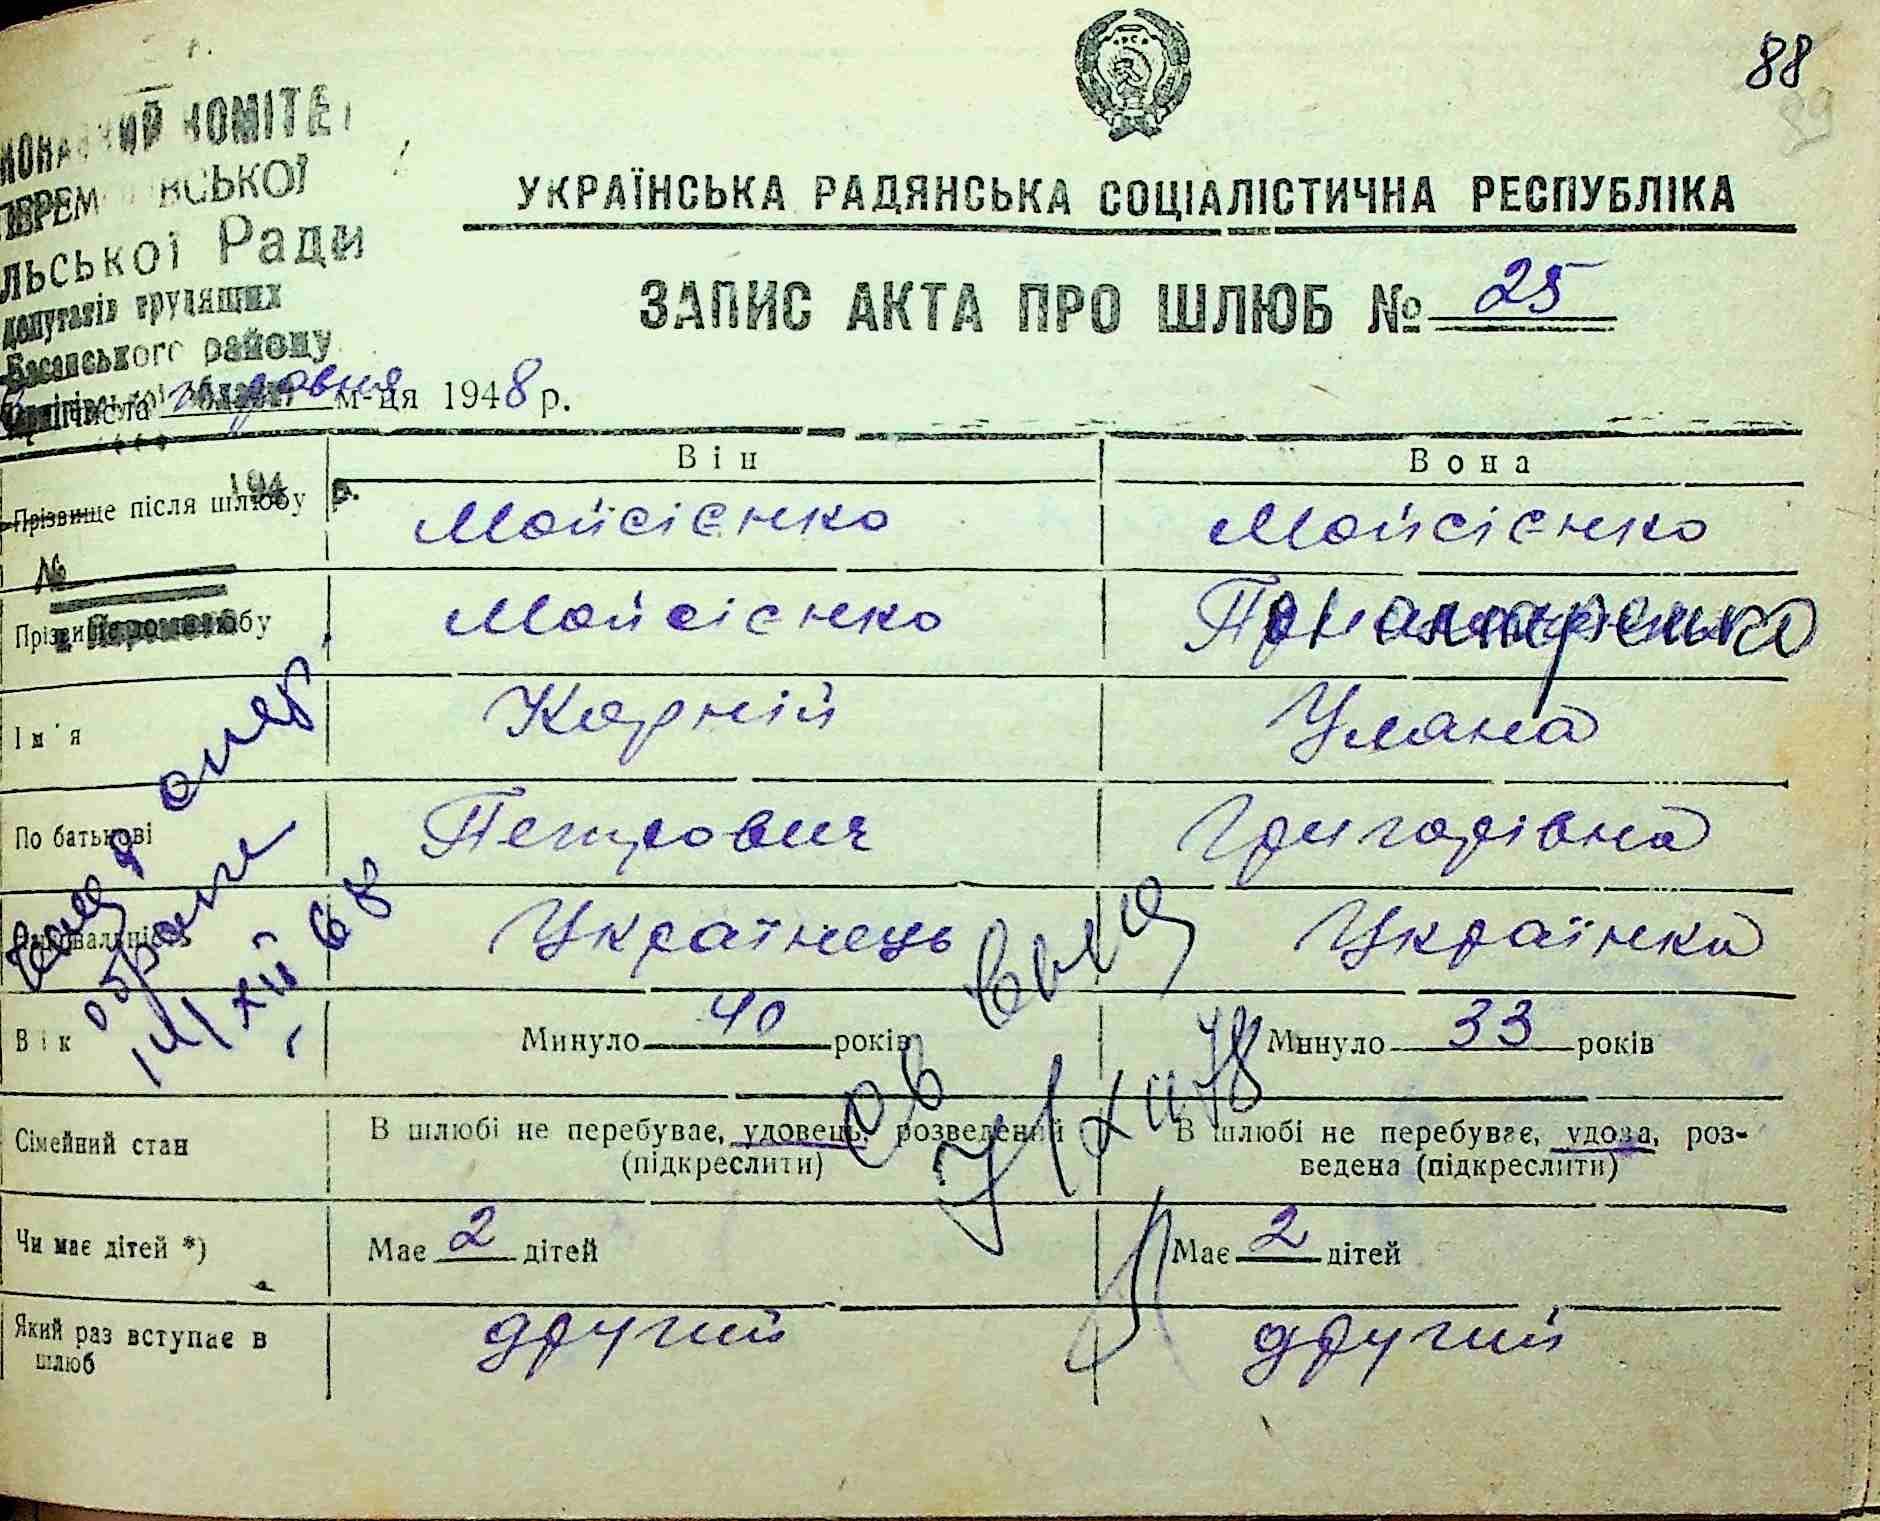 88
89
КОМІТЕ
ЛЬСЬКОЇ Ради
депутатів трудящих
Басанського району
УКРАЇНСЬКА РАДЯНСЬКА СОЦІАЛІСТИЧНА РЕСПУБЛІКА
ЗАПИС АКТА ПРО ШЛЮБ № 25
числа травня м-ця 1948 р.
Він Вона
194 р.
Прізвище після шлюбу Мойсієнко Мойсієнко
№
Мойсієнко Пономаренко
Ім'я Карній Уляна
По батькові Петрович Григорівна
Українець Українка
Вік Минуло 40 років Минуло 33 років
Сімейний стан В шлюбі не перебуває, удовець, розведений (підкреслити) В шлюбі не перебуває, удова, роз-
ведена (підкреслити)
Чи має дітей *) Має 2 дітей Має 2 дітей
Який раз вступає в шлюб другий другий
14/XII 68